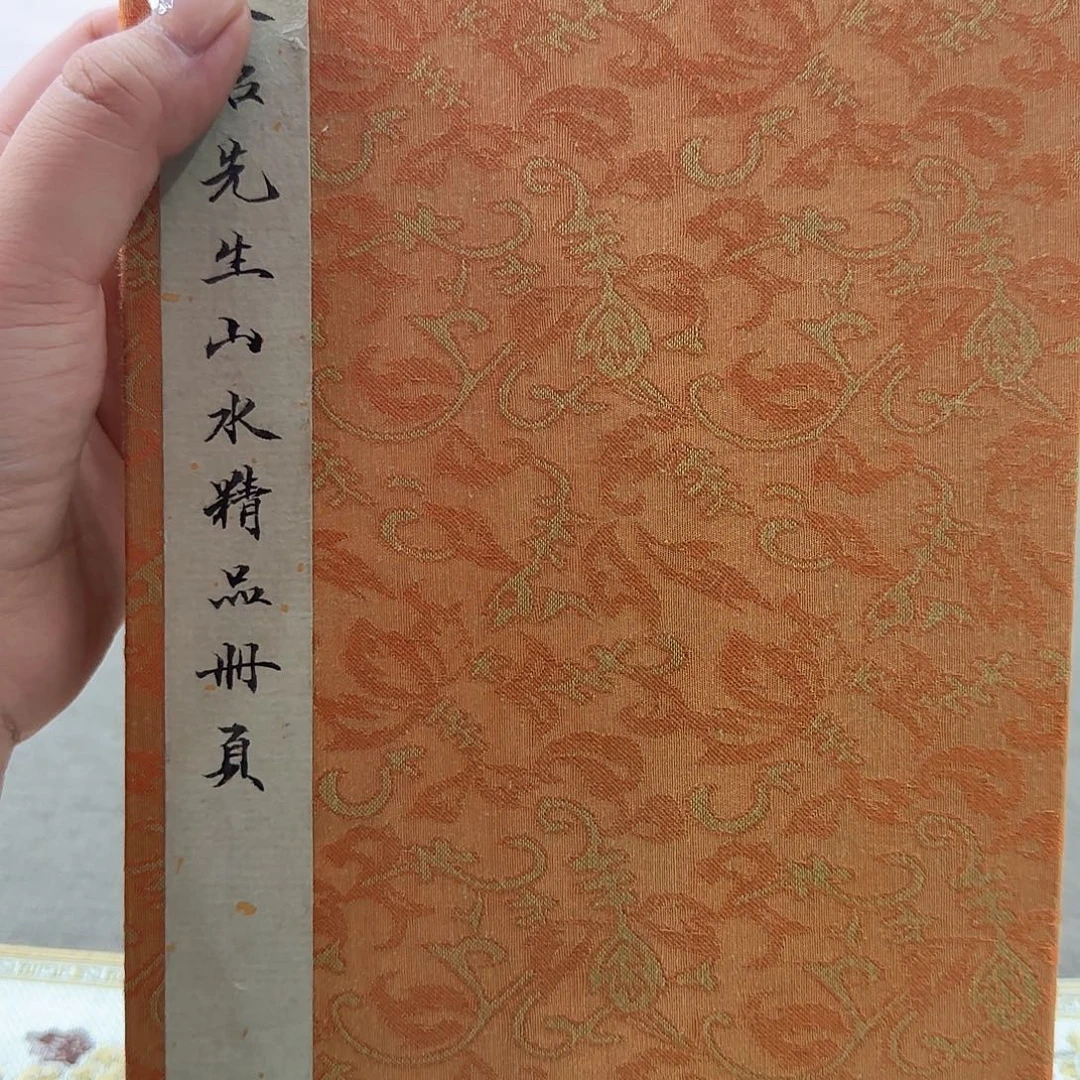 先生山水精品册頁